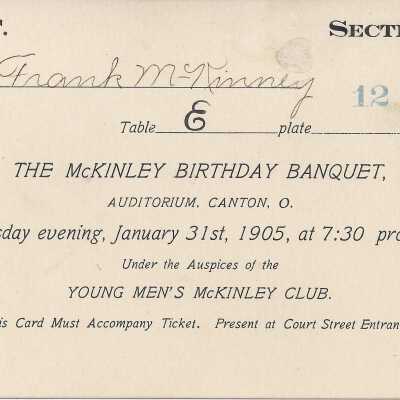 T. SECTI
Frank McKinney 12
Table E plate
THE McKINLEY BIRTHDAY BANQUET,
AUDITORIUM, CANTON, O.
sday evening, January 31st, 1905, at 7:30 pro
Under the Auspices of the
YOUNG MEN'S McKINLEY CLUB.
is Card Must Accompany Ticket. Present at Court Street Entran